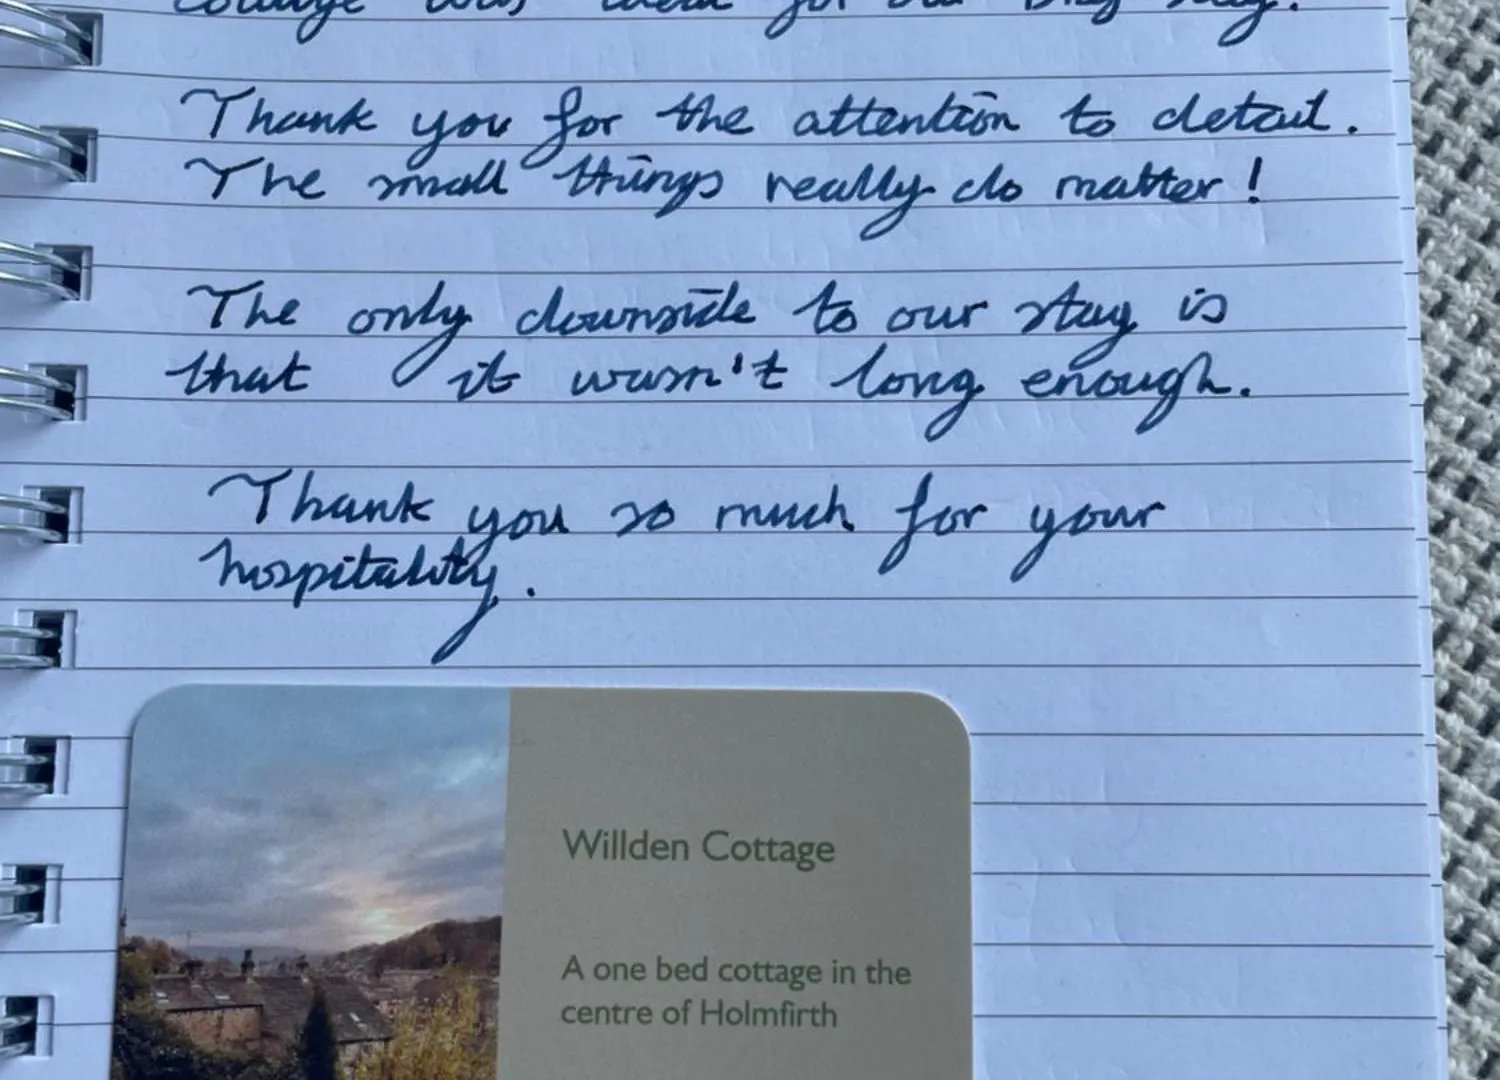 cottage was ideal for our stay.
Thank you for the attention to detail.
The small things really do matter!
The only downside to our stay is
that it wasn't long enough.
Thank you so much for your
hospitality.
Willden Cottage
A one bed cottage in the
centre of Holmfirth